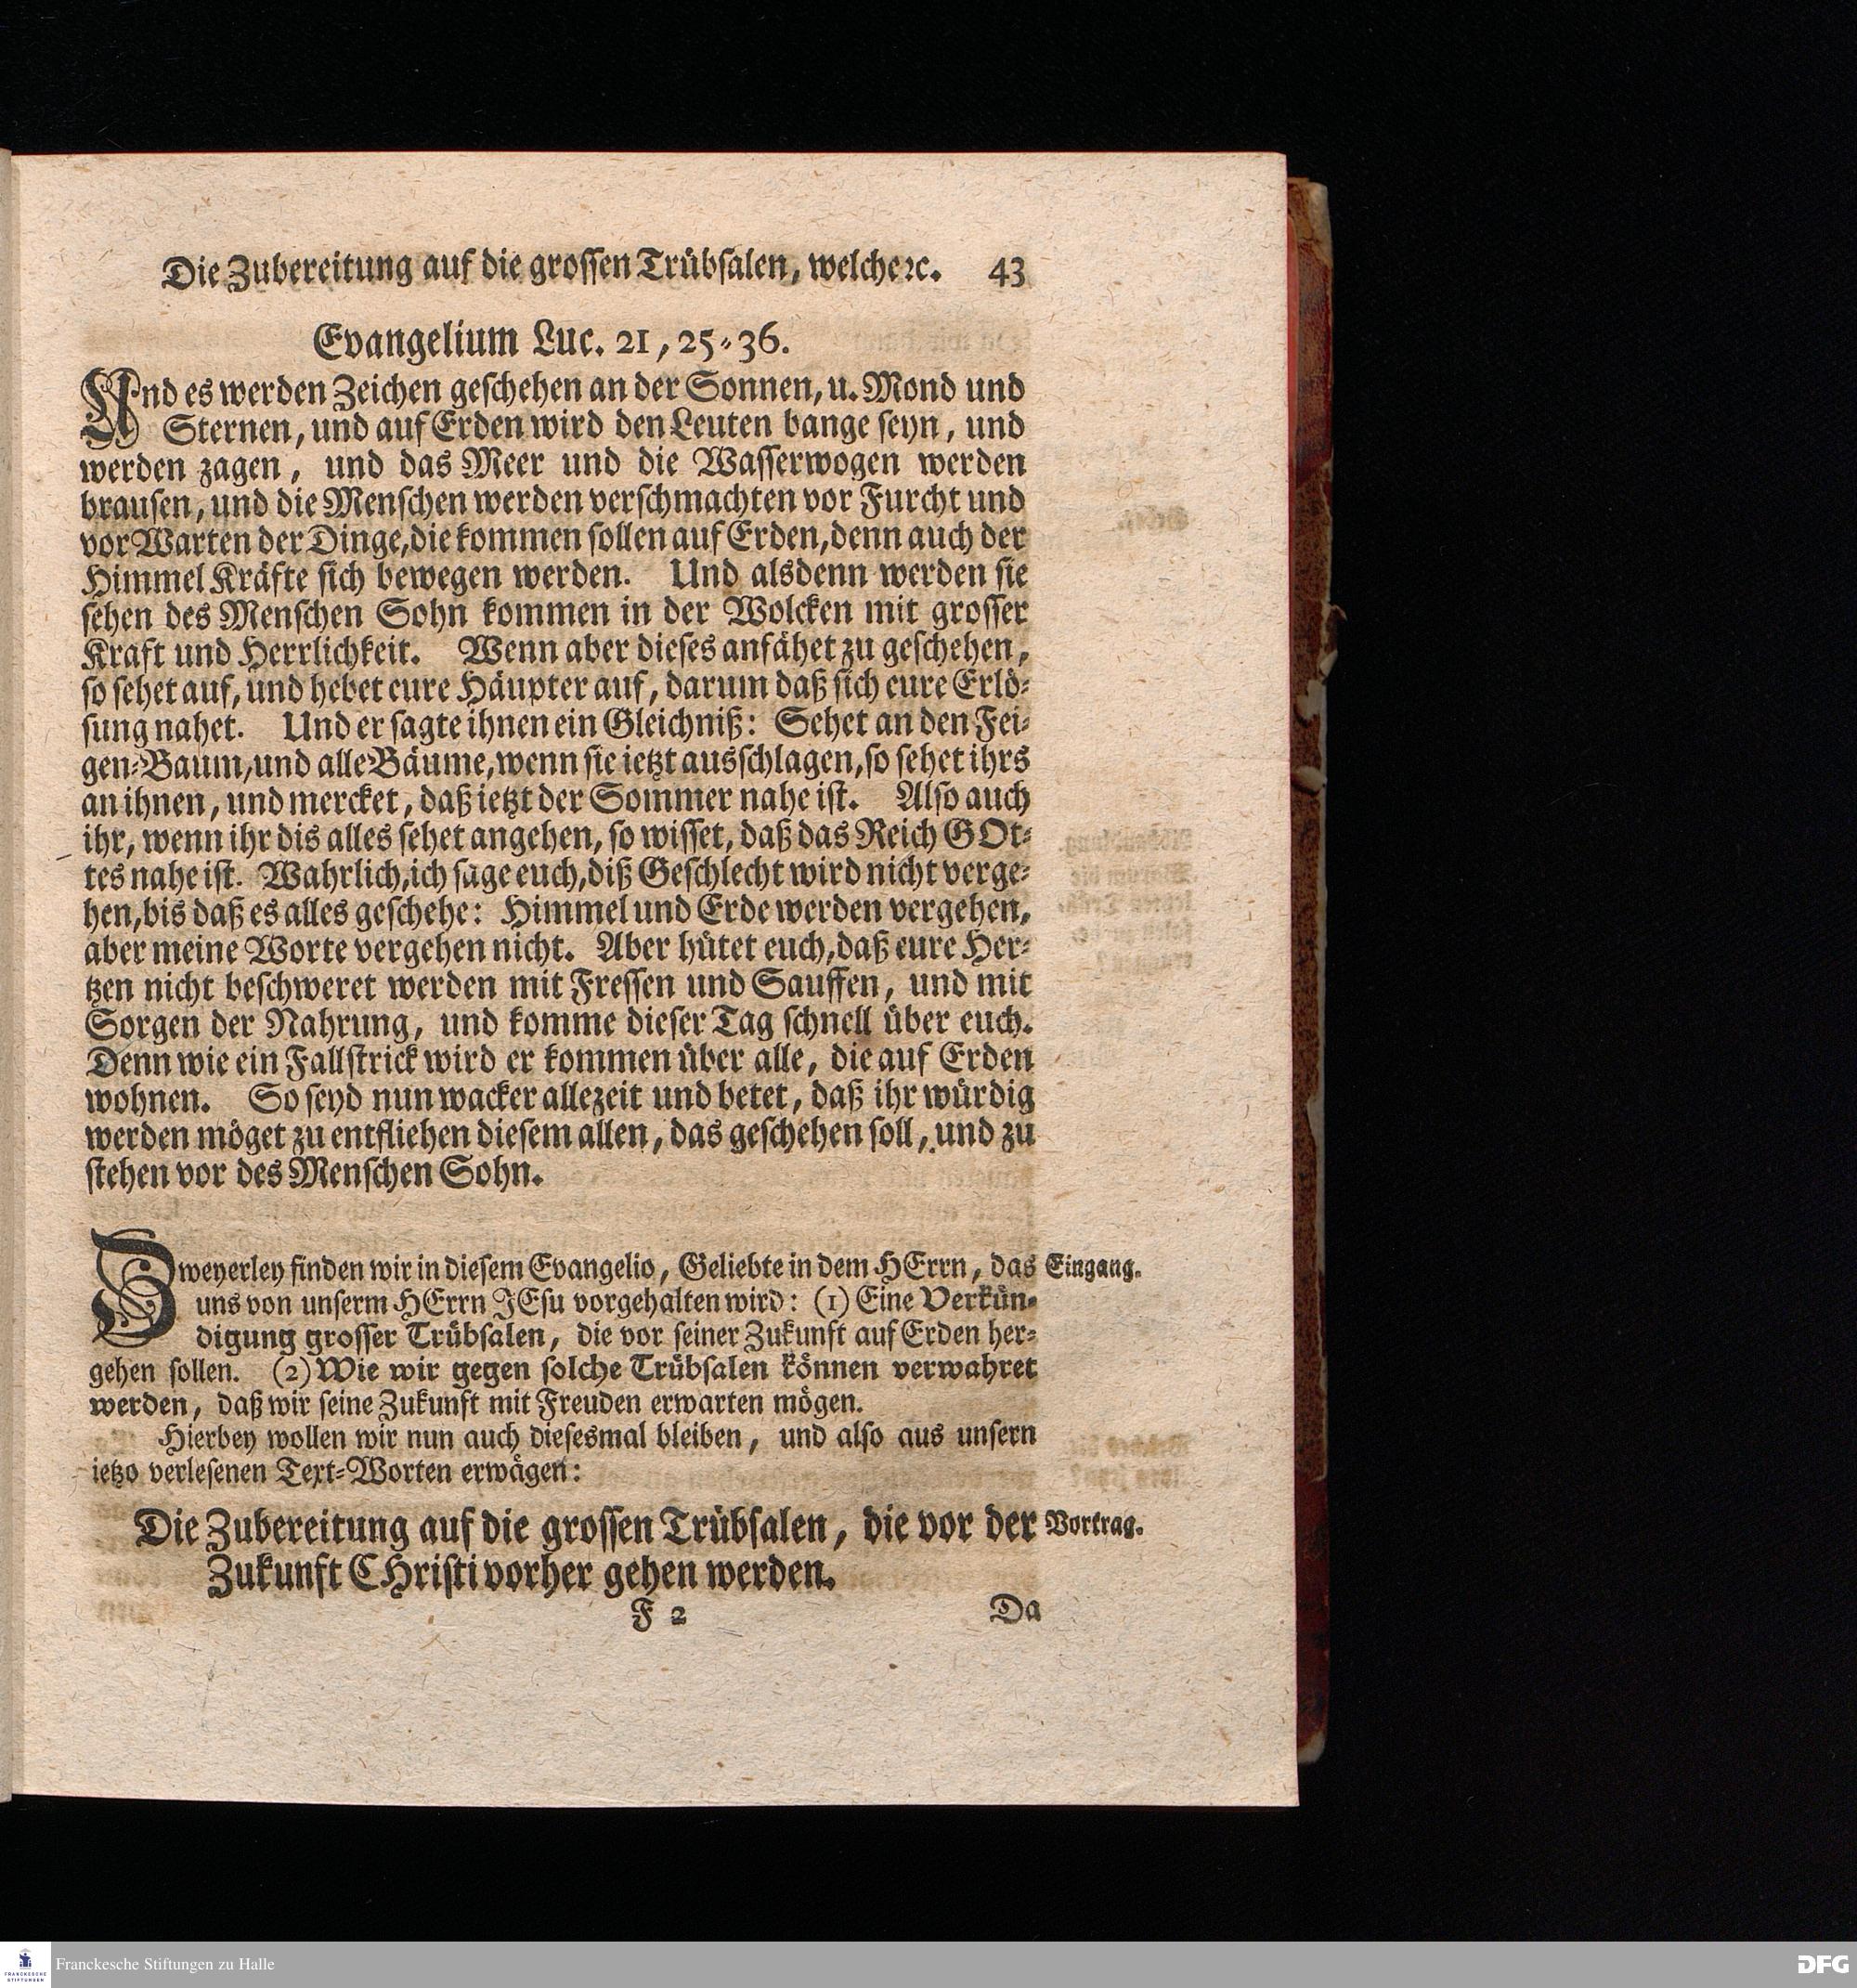 Die Zubereitung auf die grossen Trübsalen, welche ꝛc. 43
Evangelium Luc. 21, 25-36.
Und es werden Zeichen geschehen an der Sonnen, u. Mond und
Sternen, und auf Erden wird den Leuten bange seyn, und
werden zagen, und das Meer und die Wasserwogen werden
brausen, und die Menschen werden verschmachten vor Furcht und
vor Warten der Dinge, die kommen sollen auf Erden, denn auch der
Himmel Kräfte sich bewegen werden. Und alsdenn werden sie
sehen des Menschen Sohn kommen in der Wolcken mit grosser
Kraft und Herrlichkeit. Wenn aber dieses anfähet zu geschehen,
so sehet auf, und hebet eure Häupter auf, darum daß sich eure Erlö-
sung nahet. Und er sagte ihnen ein Gleichniß: Sehet an den Fei-
gen-Baum, und alle Bäume, wenn sie ietzt ausschlagen, so sehet ihrs
an ihnen, und mercket, daß ietzt der Sommer nahe ist. Also auch
ihr, wenn ihr dis alles sehet angehen, so wisset, daß das Reich GOt-
tes nahe ist. Wahrlich, ich sage euch, diß Geschlecht wird nicht verge-
hen, bis daß es alles geschehe: Himmel und Erde werden vergehen,
aber meine Worte vergehen nicht. Aber hütet euch, daß eure Her-
tzen nicht beschweret werden mit Fressen und Sauffen, und mit
Sorgen der Nahrung, und komme dieser Tag schnell über euch.
Denn wie ein Fallstrick wird er kommen über alle, die auf Erden
wohnen. So seyd nun wacker allezeit und betet, daß ihr würdig
werden möget zu entfliehen diesem allen, das geschehen soll, und zu
stehen vor des Menschen Sohn.
Zweyerley finden wir in diesem Evangelio, Geliebte in dem HErrn, das Eingang.
uns von unserm HErrn JEsu vorgehalten wird: (1) Eine Verkün-
digung grosser Trübsalen, die vor seiner Zukunft auf Erden her-
gehen sollen. (2) Wie wir gegen solche Trübsalen können verwahret
werden, daß wir seine Zukunft mit Freuden erwarten mögen.
Hierbey wollen wir nun auch diesesmal bleiben, und also aus unsern
ietzo verlesenen Text-Worten erwägen:
Die Zubereitung auf die grossen Trübsalen, die vor der Vortrag.
Zukunft CHristi vorher gehen werden.
F 2 Da
FRANCKESCHE
STIFTUNGEN
Franckesche Stiftungen zu Halle
DFG